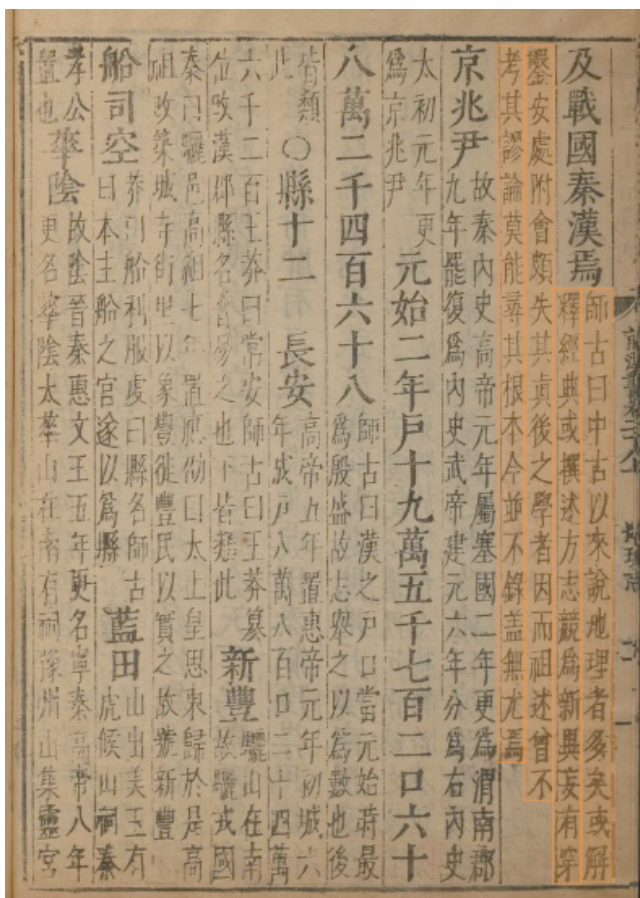 及戰國秦漢焉
師古曰中古以來說地理者多矣或解
釋經典或撰述方志競爲新異妄有穿
鑿安處附會頗失其真後之學者因而祖述曾不
考其謬論莫能尋其根本今並不錄蓋無尤焉
京兆尹
故秦內史高帝元年屬塞國二年更爲渭南郡
九年罷復爲內史武帝建元六年分爲右內史
太初元年更
爲京兆尹
元始二年戶十九萬五千七百二口六十
八萬二千四百六十八
師古曰漢之戶口當元始時最
爲殷盛故志舉之以爲數也後
皆類
此
○縣十二
長安
高帝五年置惠帝元年初城六
年成戶八萬八百口二十四萬
六千二百王莽曰常安師古曰王莽篡
位改漢郡縣名普易之也下皆類此
新豐
驪山在南
故驪戎國
秦曰驪邑高祖七年置應劭曰太上皇思東歸於是高
祖改築城寺街里以象豐徙豐民以實之故號新豐
船司空
莽曰船利服虔曰縣名師古
曰本主船之官遂以爲縣
藍田
山出美玉有
虎候山祠秦
孝公
置也
華陰
故陰晉秦惠文王五年更名寧秦高帝八年
更名華陰太華山在南有祠豫州山集靈宮